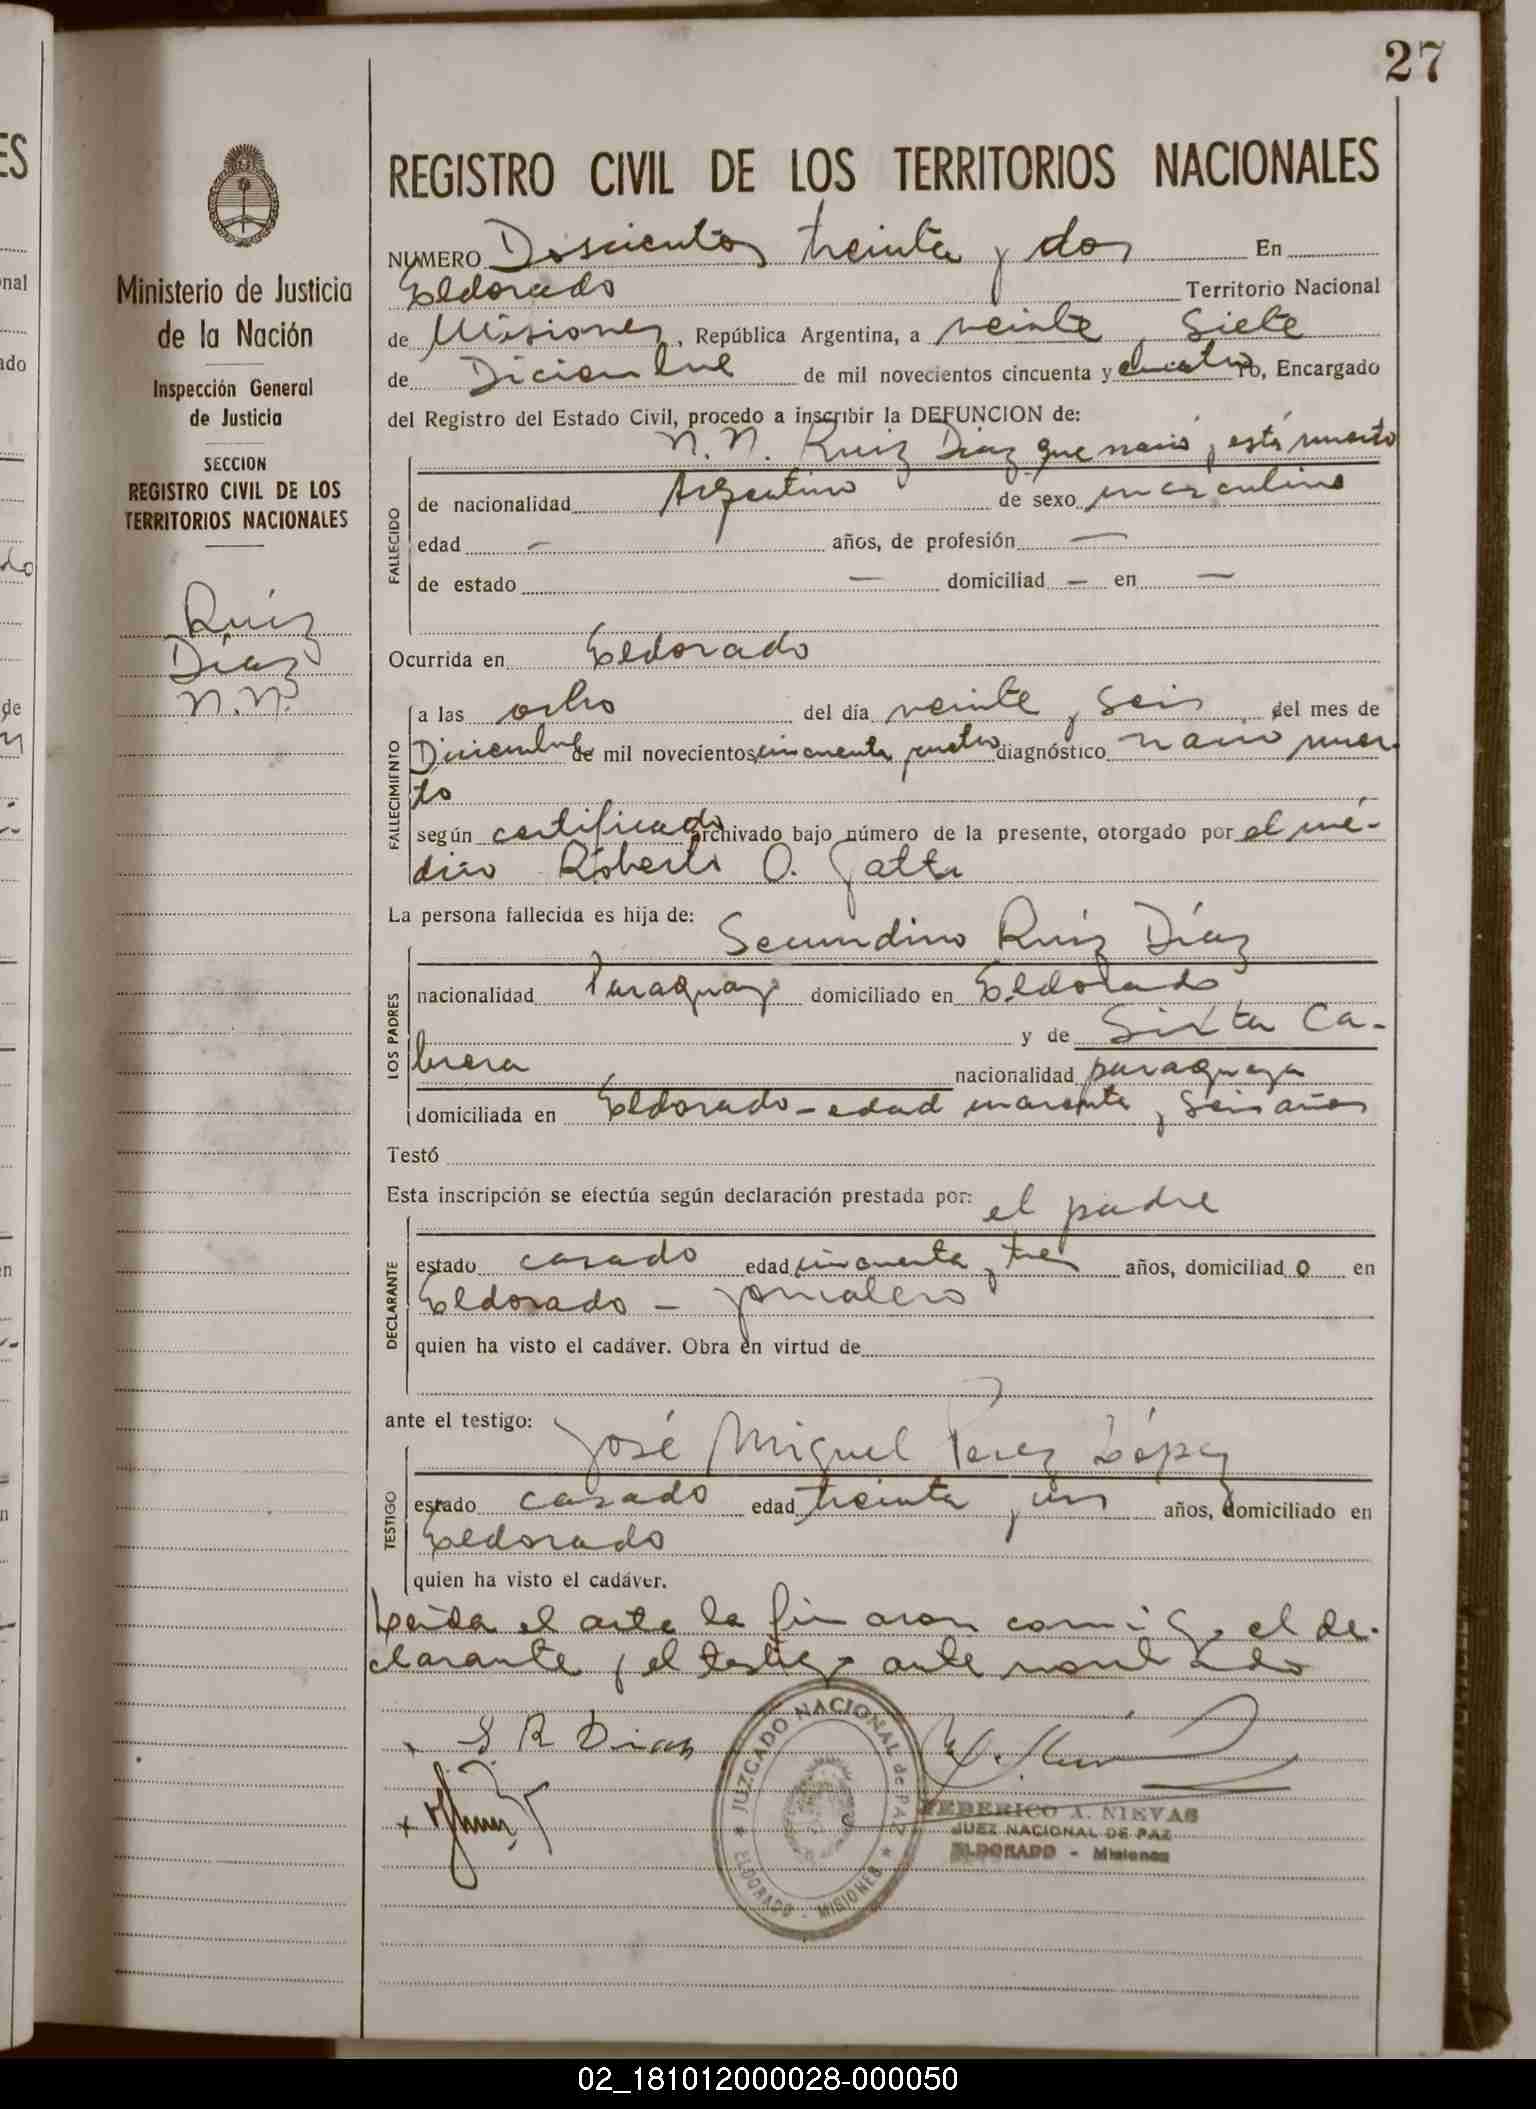 27
REGISTRO CIVIL DE LOS TERRITORIOS NACIONALES
Ministerio de Justicia
de la Nación
Inspección General
de Justicia
SECCION
REGISTRO CIVIL DE LOS
TERRITORIOS NACIONALES
Ruíz
Díaz
N.N.
NUMERO Doscientos treinta y dos En
Eldorado Territorio Nacional
de Misiones, República Argentina, a veinte siete
de Diciembre de mil novecientos cincuenta y cuatro yo, Encargado
del Registro del Estado Civil, procedo a inscribir la DEFUNCION de:
N.N. Ruiz Diaz que nació y está muerto
FALLECIDO
de nacionalidad Argentino de sexo masculino
edad — años, de profesión —
de estado — domiciliad — en —
Ocurrida en Eldorado
FALLECIMIENTO
a las ocho del día veinte y seis del mes de
Diciembre de mil novecientos cincuenta y cuatro diagnóstico nació muer-
to
según certificado archivado bajo número de la presente, otorgado por el mé-
dico Roberto O. Gatti
La persona fallecida es hija de:
Secundino Ruíz Díaz
LOS PADRES
nacionalidad Paraguayo domiciliado en Eldorado
y de Sixta Ca-
brera nacionalidad paraguaya
domiciliada en Eldorado - edad cuarenta y seis años
Testó
Esta inscripción se efectúa según declaración prestada por: el padre
DECLARANTE
estado casado edad cincuenta y tres años, domiciliad o en
Eldorado - jornalero
quien ha visto el cadáver. Obra en virtud de
ante el testigo: José Miguel Perez López
TESTIGO
estado casado edad treinta y un años, domiciliado en
Eldorado
quien ha visto el cadáver.
Leída el acta la firmaron conmigo el de-
clarante y el testigo ante nombrado
S R Diaz
JUZGADO NACIONAL de PAZ
ELDORADO - MISIONES
FEDERICO A. NIEVAS
JUEZ NACIONAL DE PAZ
ELDORADO - Misiones
02_181012000028-000050